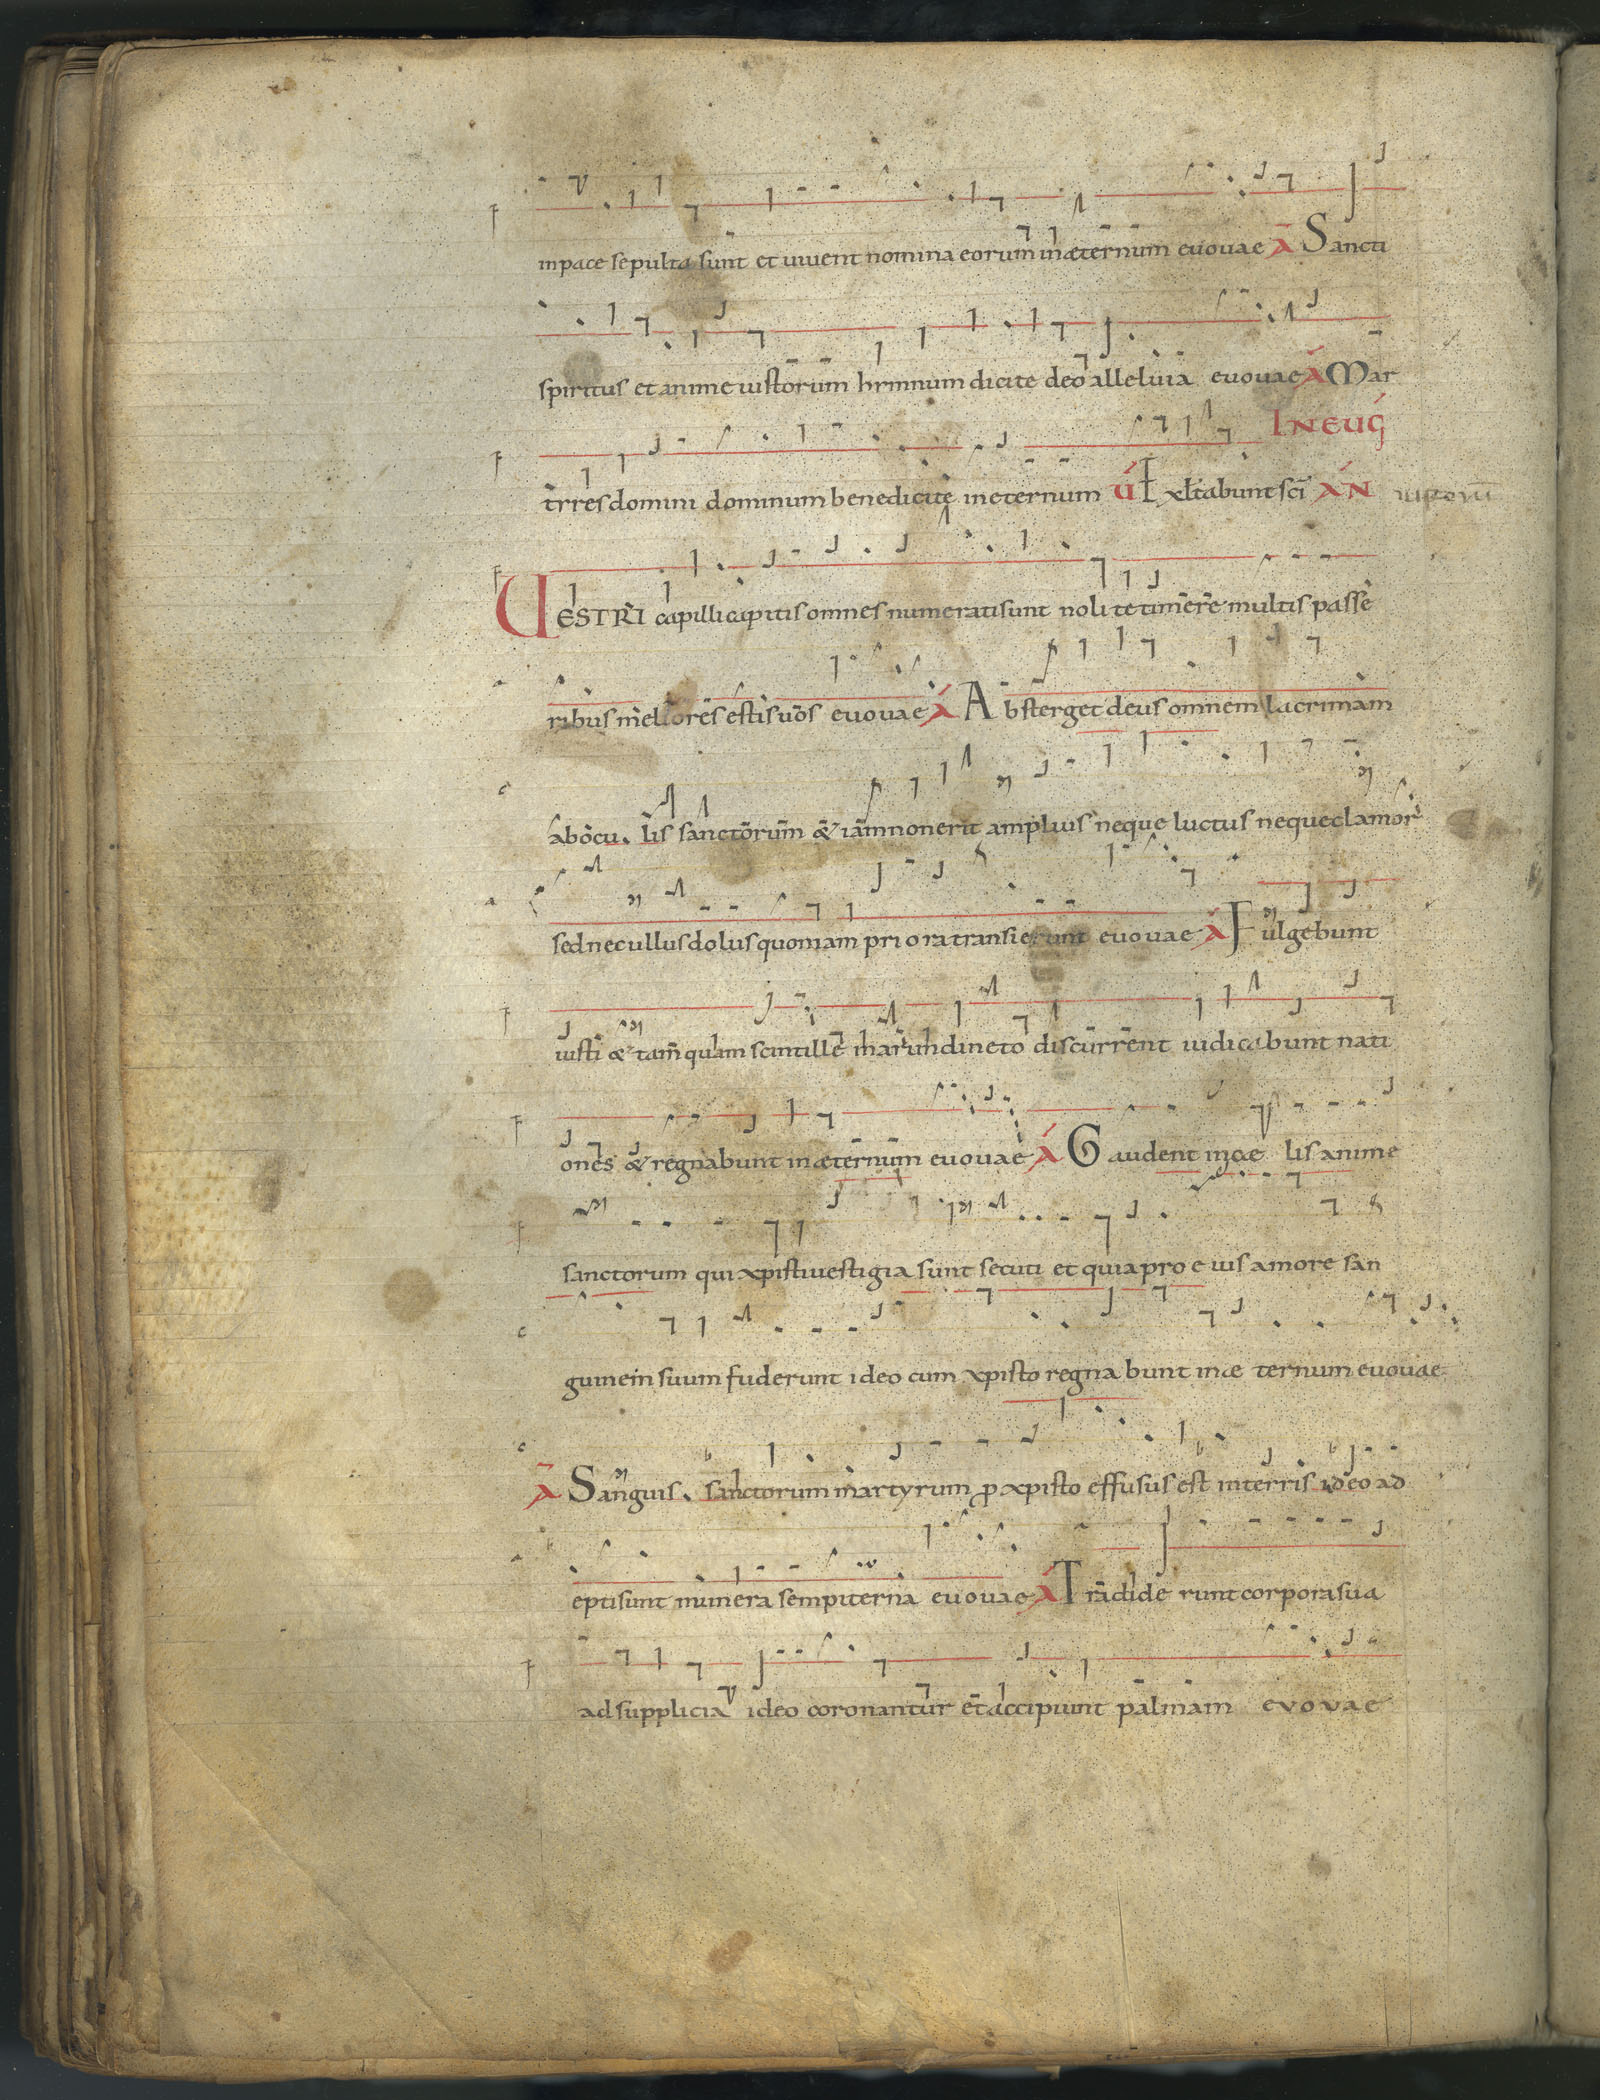 inpace sepulta sunt et uiuent nomina eorum inæternum euouae A Sancti
spiritus et anime iustorum hymnum dicite deo alleluia euouae A Mar
IN EUG
tyres domini dominum benedicite ineternum V Exltabunt sci AN
UESTRI capilli capitis omnes numerati sunt nolite timere multis passe
ribus meliores estis uos euouae A Absterget deus omnem lacrimam
abocu lis sanctorum & iam non erit amplius neque luctus neque clamor
sed nec ullus dolus quoniam priora transierunt euouae A Fulgebunt
iusti & tamquam scintille inarundineto discurrent iudicabunt nati
ones & regnabunt inæternum euouae A Gaudent incæ lis anime
sanctorum qui xpisti uestigia sunt secuti et quia pro eius amore san
guinem suum fuderunt ideo cum xpisto regnabunt inæ ternum euouae
A Sanguis sanctorum martyrum p xpisto effusus est interris ideo ad
epti sunt munera sempiterna euouae A Tradide runt corpora sua
ad supplicia ideo coronantur et accipiunt palmam euouae